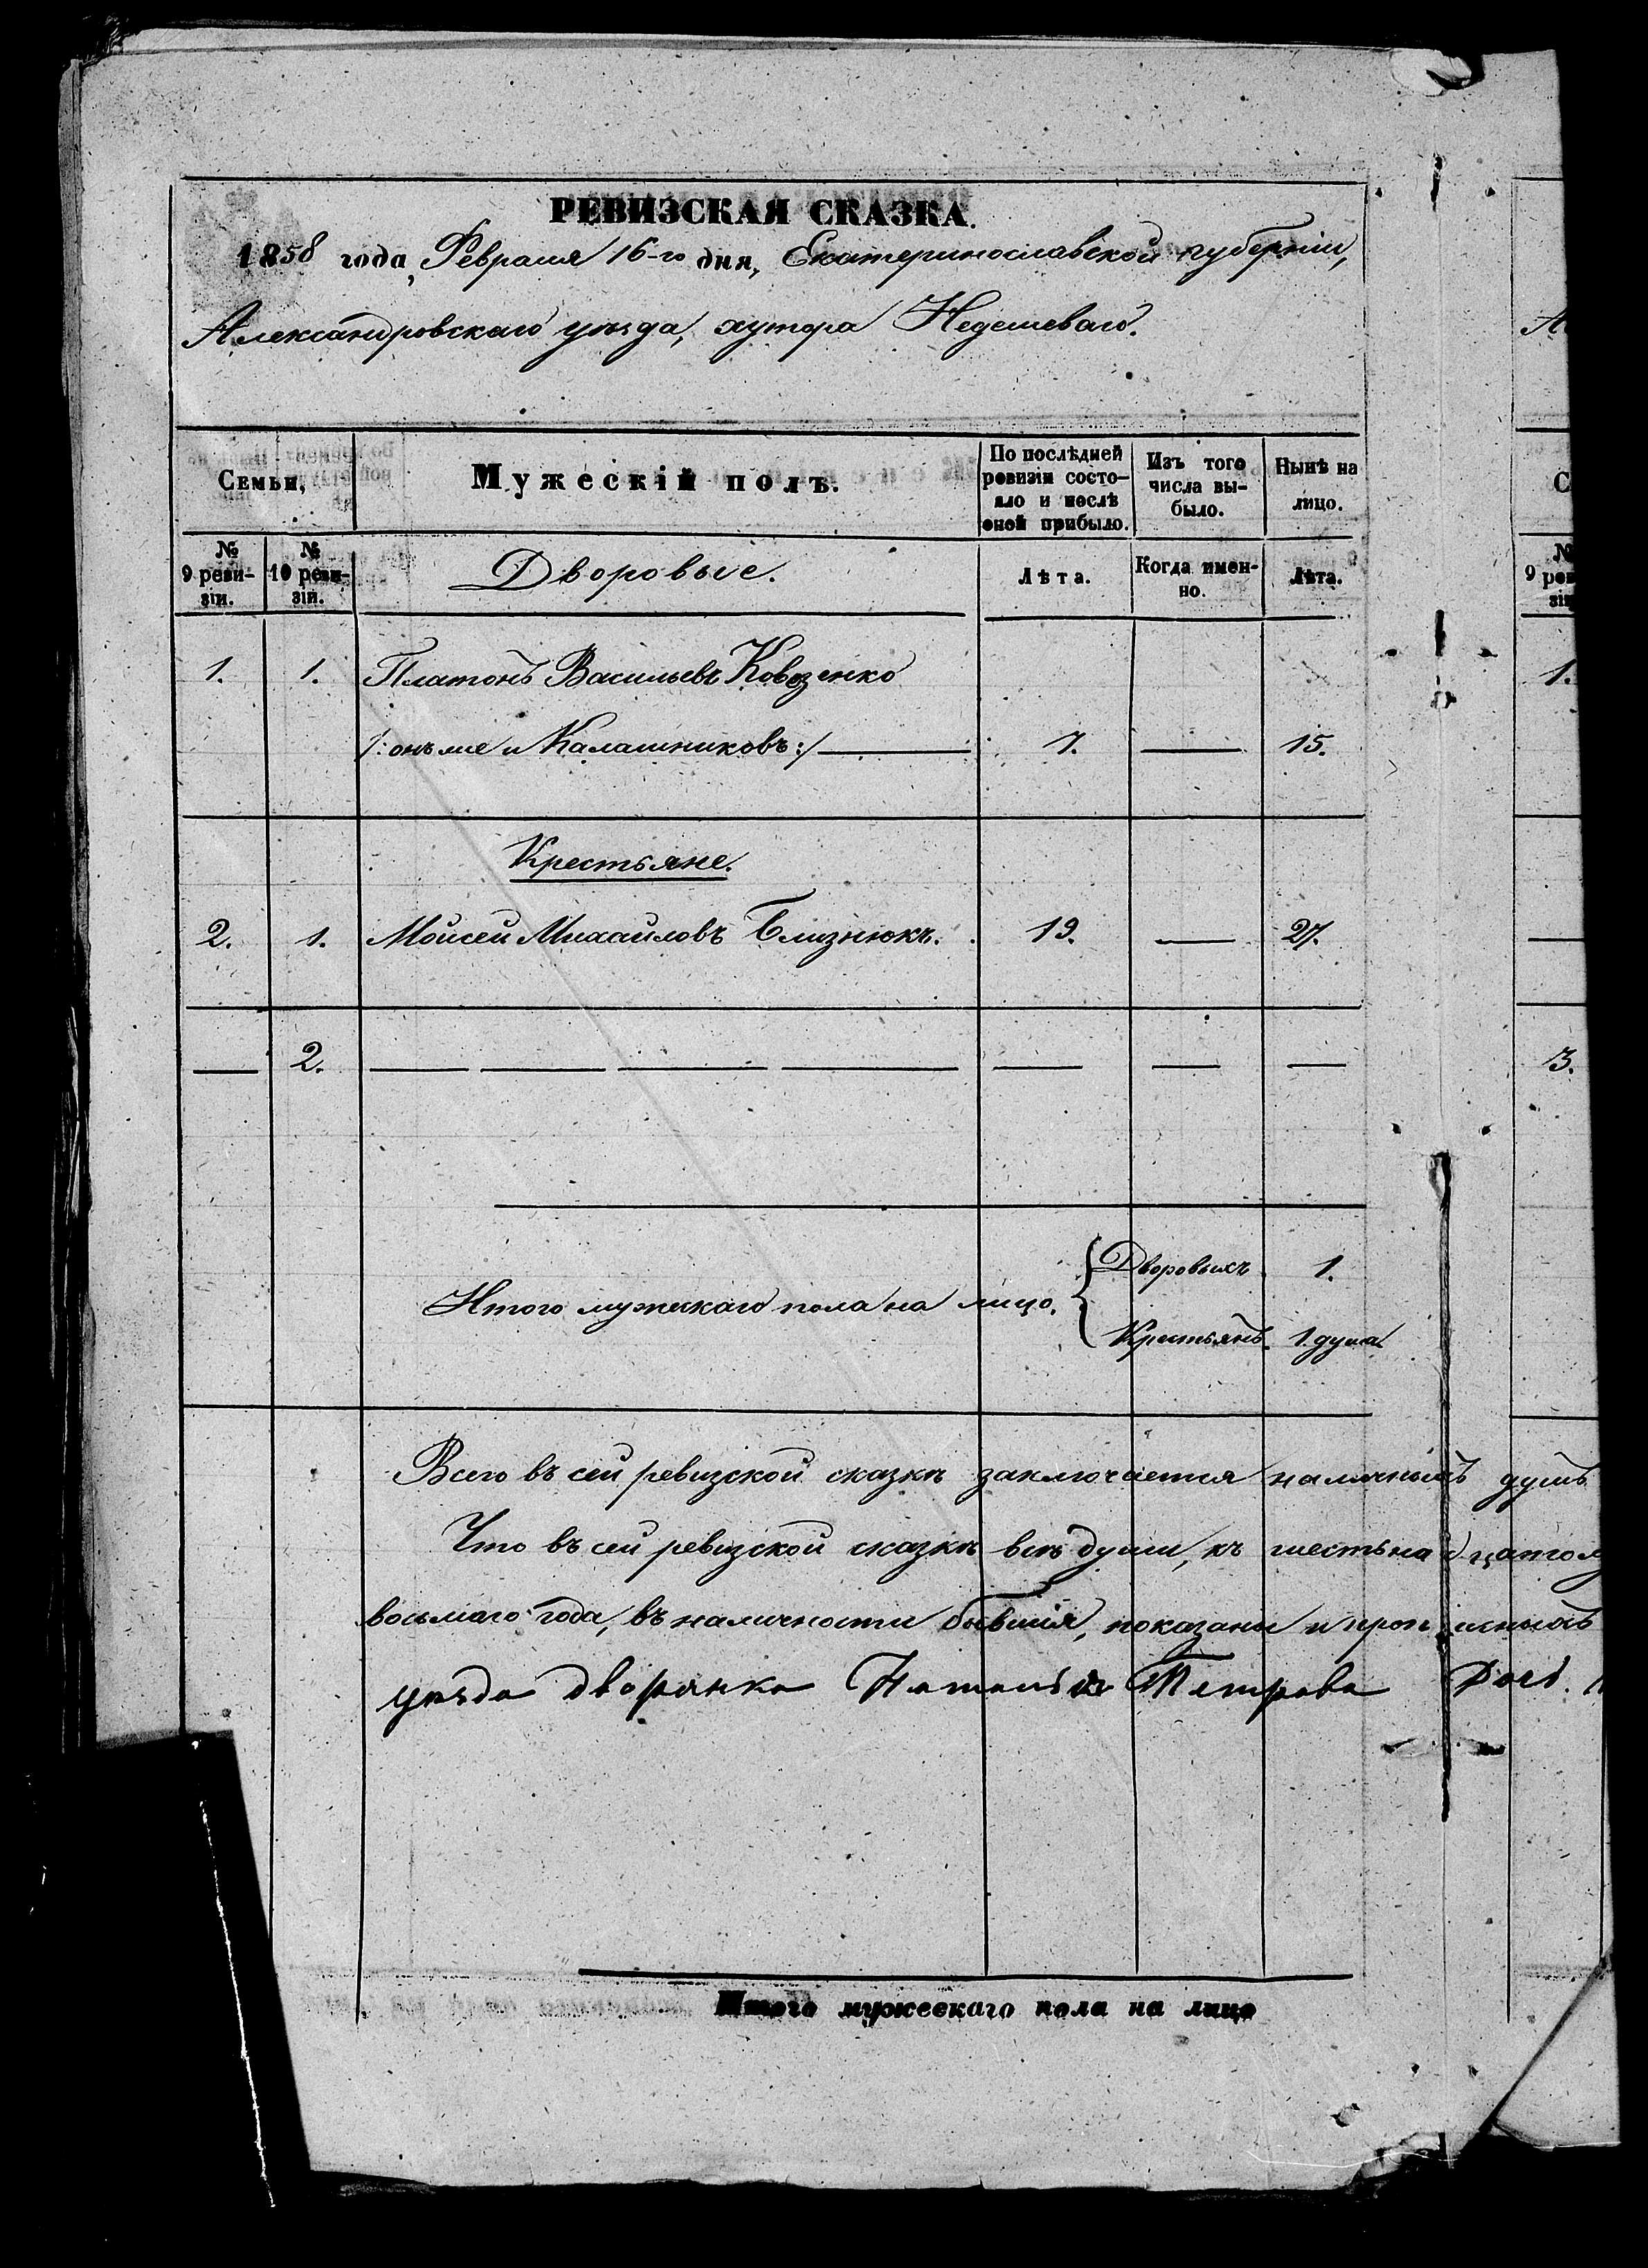 РЕВИЗСКАЯ СКАЗКА.
1858 года, Февраля 16-го дня, Екатеринославской губерніи,
Александровскаго уѣзда, хутора Недешеваго.
Семьи,
Мужескій полъ.
По послѣдней ревизіи состо-
яло и послѣ оной прибыло.
Изъ того числа вы-
было.
Нынѣ на лицо.
№ 9 реви-
зіи.
№ 10 реви-
зіи.
Дворовые.
Лѣта.
Когда имен-
но.
Лѣта.
1. 1. Платонъ Васильевъ Ковозенко
/: онъ же и Калашниковъ :/ — 7. — 15.
Крестьяне.
2. 1. Мойсей Михайловъ Близнюкъ. 19. — 27.
— 2. — — — — — — —
Дворовыхъ 1.
Итого мужескаго пола на лицо.
Крестьянъ. 1. душа
Всего въ сей ревизской сказкѣ заключается наличныхъ душъ
Что въ сей ревизской сказкѣ всѣ души, къ шестьна
восьмаго года, въ наличности бывшія, показаны и
уѣзда дворянка Наталья Петрова
Итого мужескаго пола на лицо
9
1.
3.